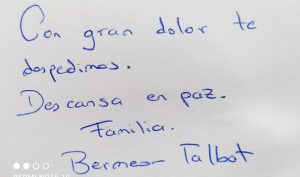 Con gran dolor te
despedimos.
Descansa en paz.
Familia.
Bermeo Talbot
REDMI NOTE 10